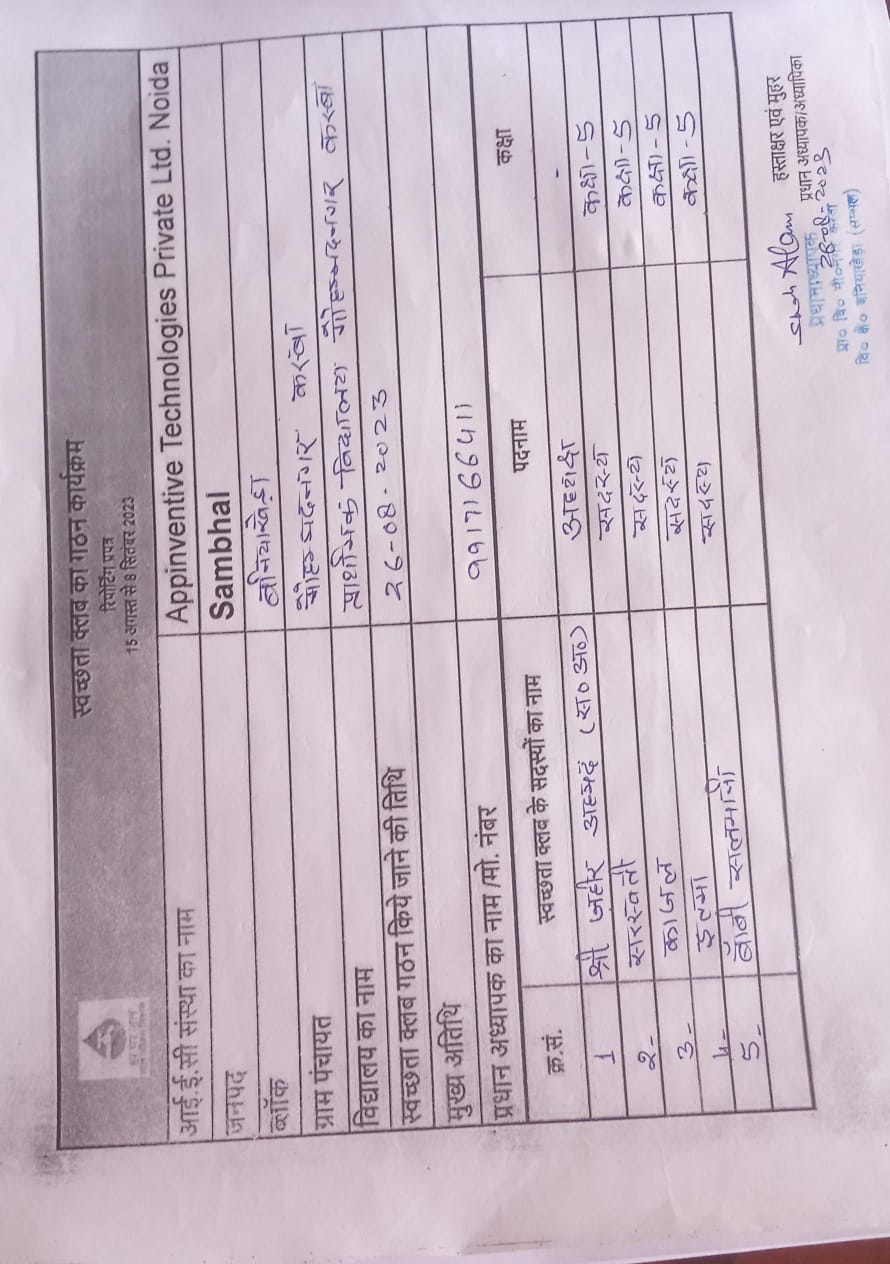 स्वच्छता क्लब का गठन कार्यक्रम
रिपोर्टिंग प्रपत्र
15 अगस्त से 8 सितंबर 2023
आई.ई.सी संस्था का नाम Appinventive Technologies Private Ltd. Noida
जनपद Sambhal
ब्लॉक बनियाखेड़ा
ग्राम पंचायत मौहम्मदनगर कस्बा
विद्यालय का नाम प्राथमिक विद्यालय मौहम्मदनगर कस्बा
स्वच्छता क्लब गठन किये जाने की तिथि 26-08-2023
मुख्य अतिथि
प्रधान अध्यापक का नाम /मो. नंबर 9917166411
क्र.सं. स्वच्छता क्लब के सदस्यों का नाम पदनाम कक्षा
1 श्री जहीर अहमद (स०अ०) अध्यक्ष -
2- सरस्वती सदस्य कक्षा-5
3- काजल सदस्य कक्षा-5
4- इल्मा सदस्य कक्षा-5
5- बॉबी सलमानी सदस्य कक्षा-5
Shah Alam
हस्ताक्षर एवं मुहर
प्रधान अध्यापक/अध्यापिका
26-08-2023
प्रधानाध्यापक
प्रा० वि० मौ०नगर कस्बा
वि० क्षे० बनियाखेड़ा (सम्भल)